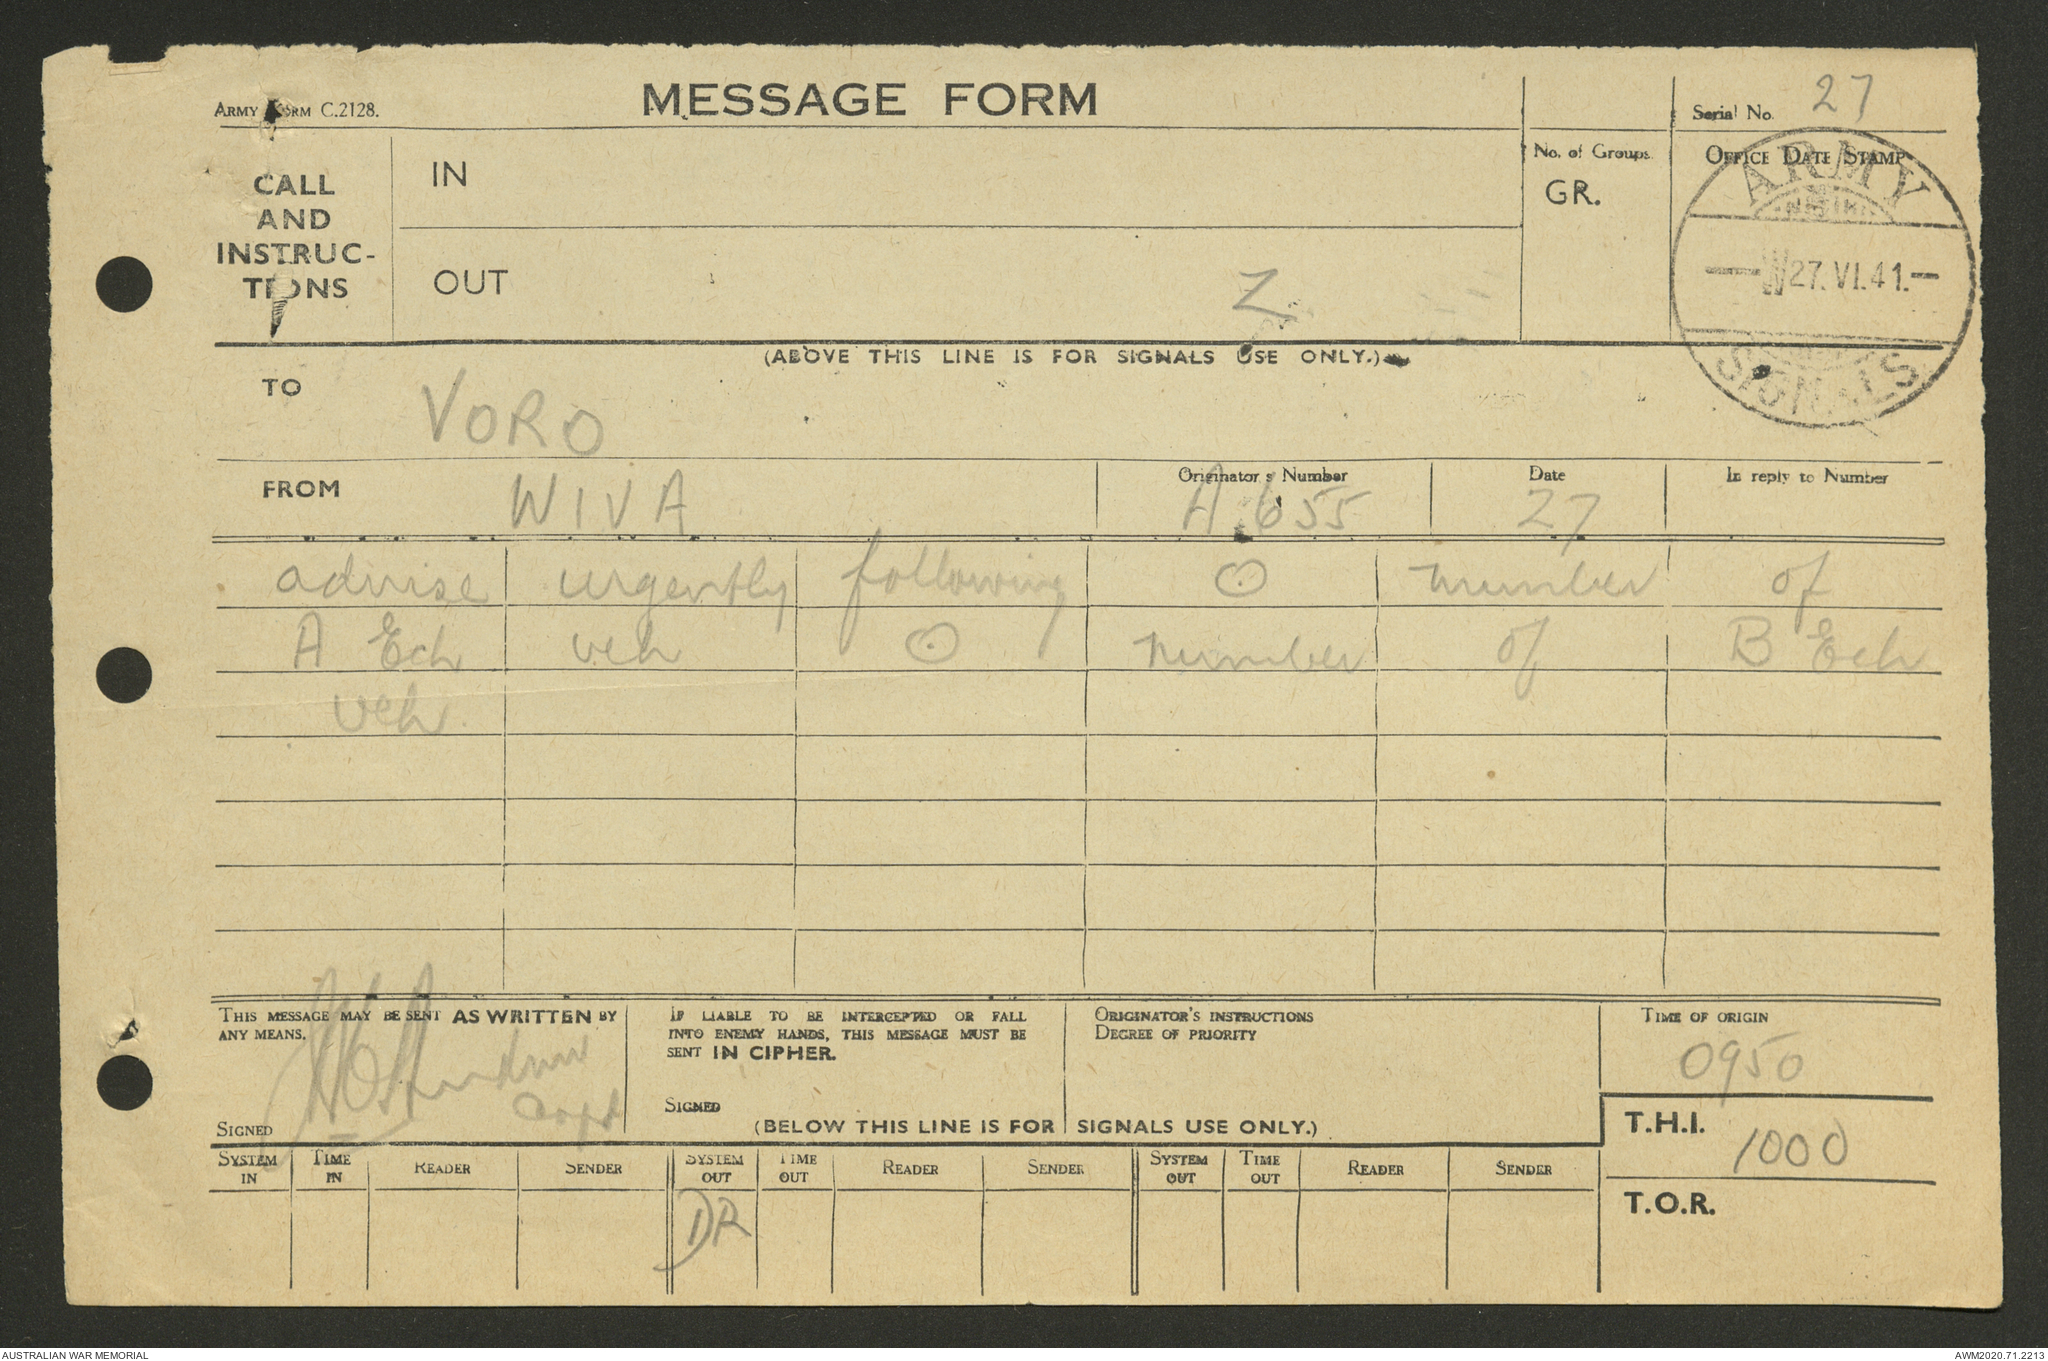 MESSAGE FORM
ARMY FORM C.2128.
Serial No. 27
CALL AND INSTRUC-TIONS
IN
No. of Groups
GR.
OFFICE DATE STAMP
ARMY
27.VI.41.
SIGNALS
OUT
Z
(ABOVE THIS LINE IS FOR SIGNALS USE ONLY.)
TO VORO
FROM WIVA
Originator's Number A 655
Date 27
In reply to Number
advise urgently following ⊙ number of
A Ech veh ⊙ number of B Ech
veh.
THIS MESSAGE MAY BE SENT AS WRITTEN BY
ANY MEANS.
Capt
SIGNED
IF LIABLE TO BE INTERCEPTED OR FALL
INTO ENEMY HANDS, THIS MESSAGE MUST BE
SENT IN CIPHER.
SIGNED
ORIGINATOR'S INSTRUCTIONS
DEGREE OF PRIORITY
TIME OF ORIGIN
0950
(BELOW THIS LINE IS FOR SIGNALS USE ONLY.)
T.H.I. 1000
SYSTEM IN TIME IN READER SENDER SYSTEM OUT TIME OUT READER SENDER SYSTEM OUT TIME OUT READER SENDER
DR
T.O.R.
AUSTRALIAN WAR MEMORIAL
AWM2020.71.2213